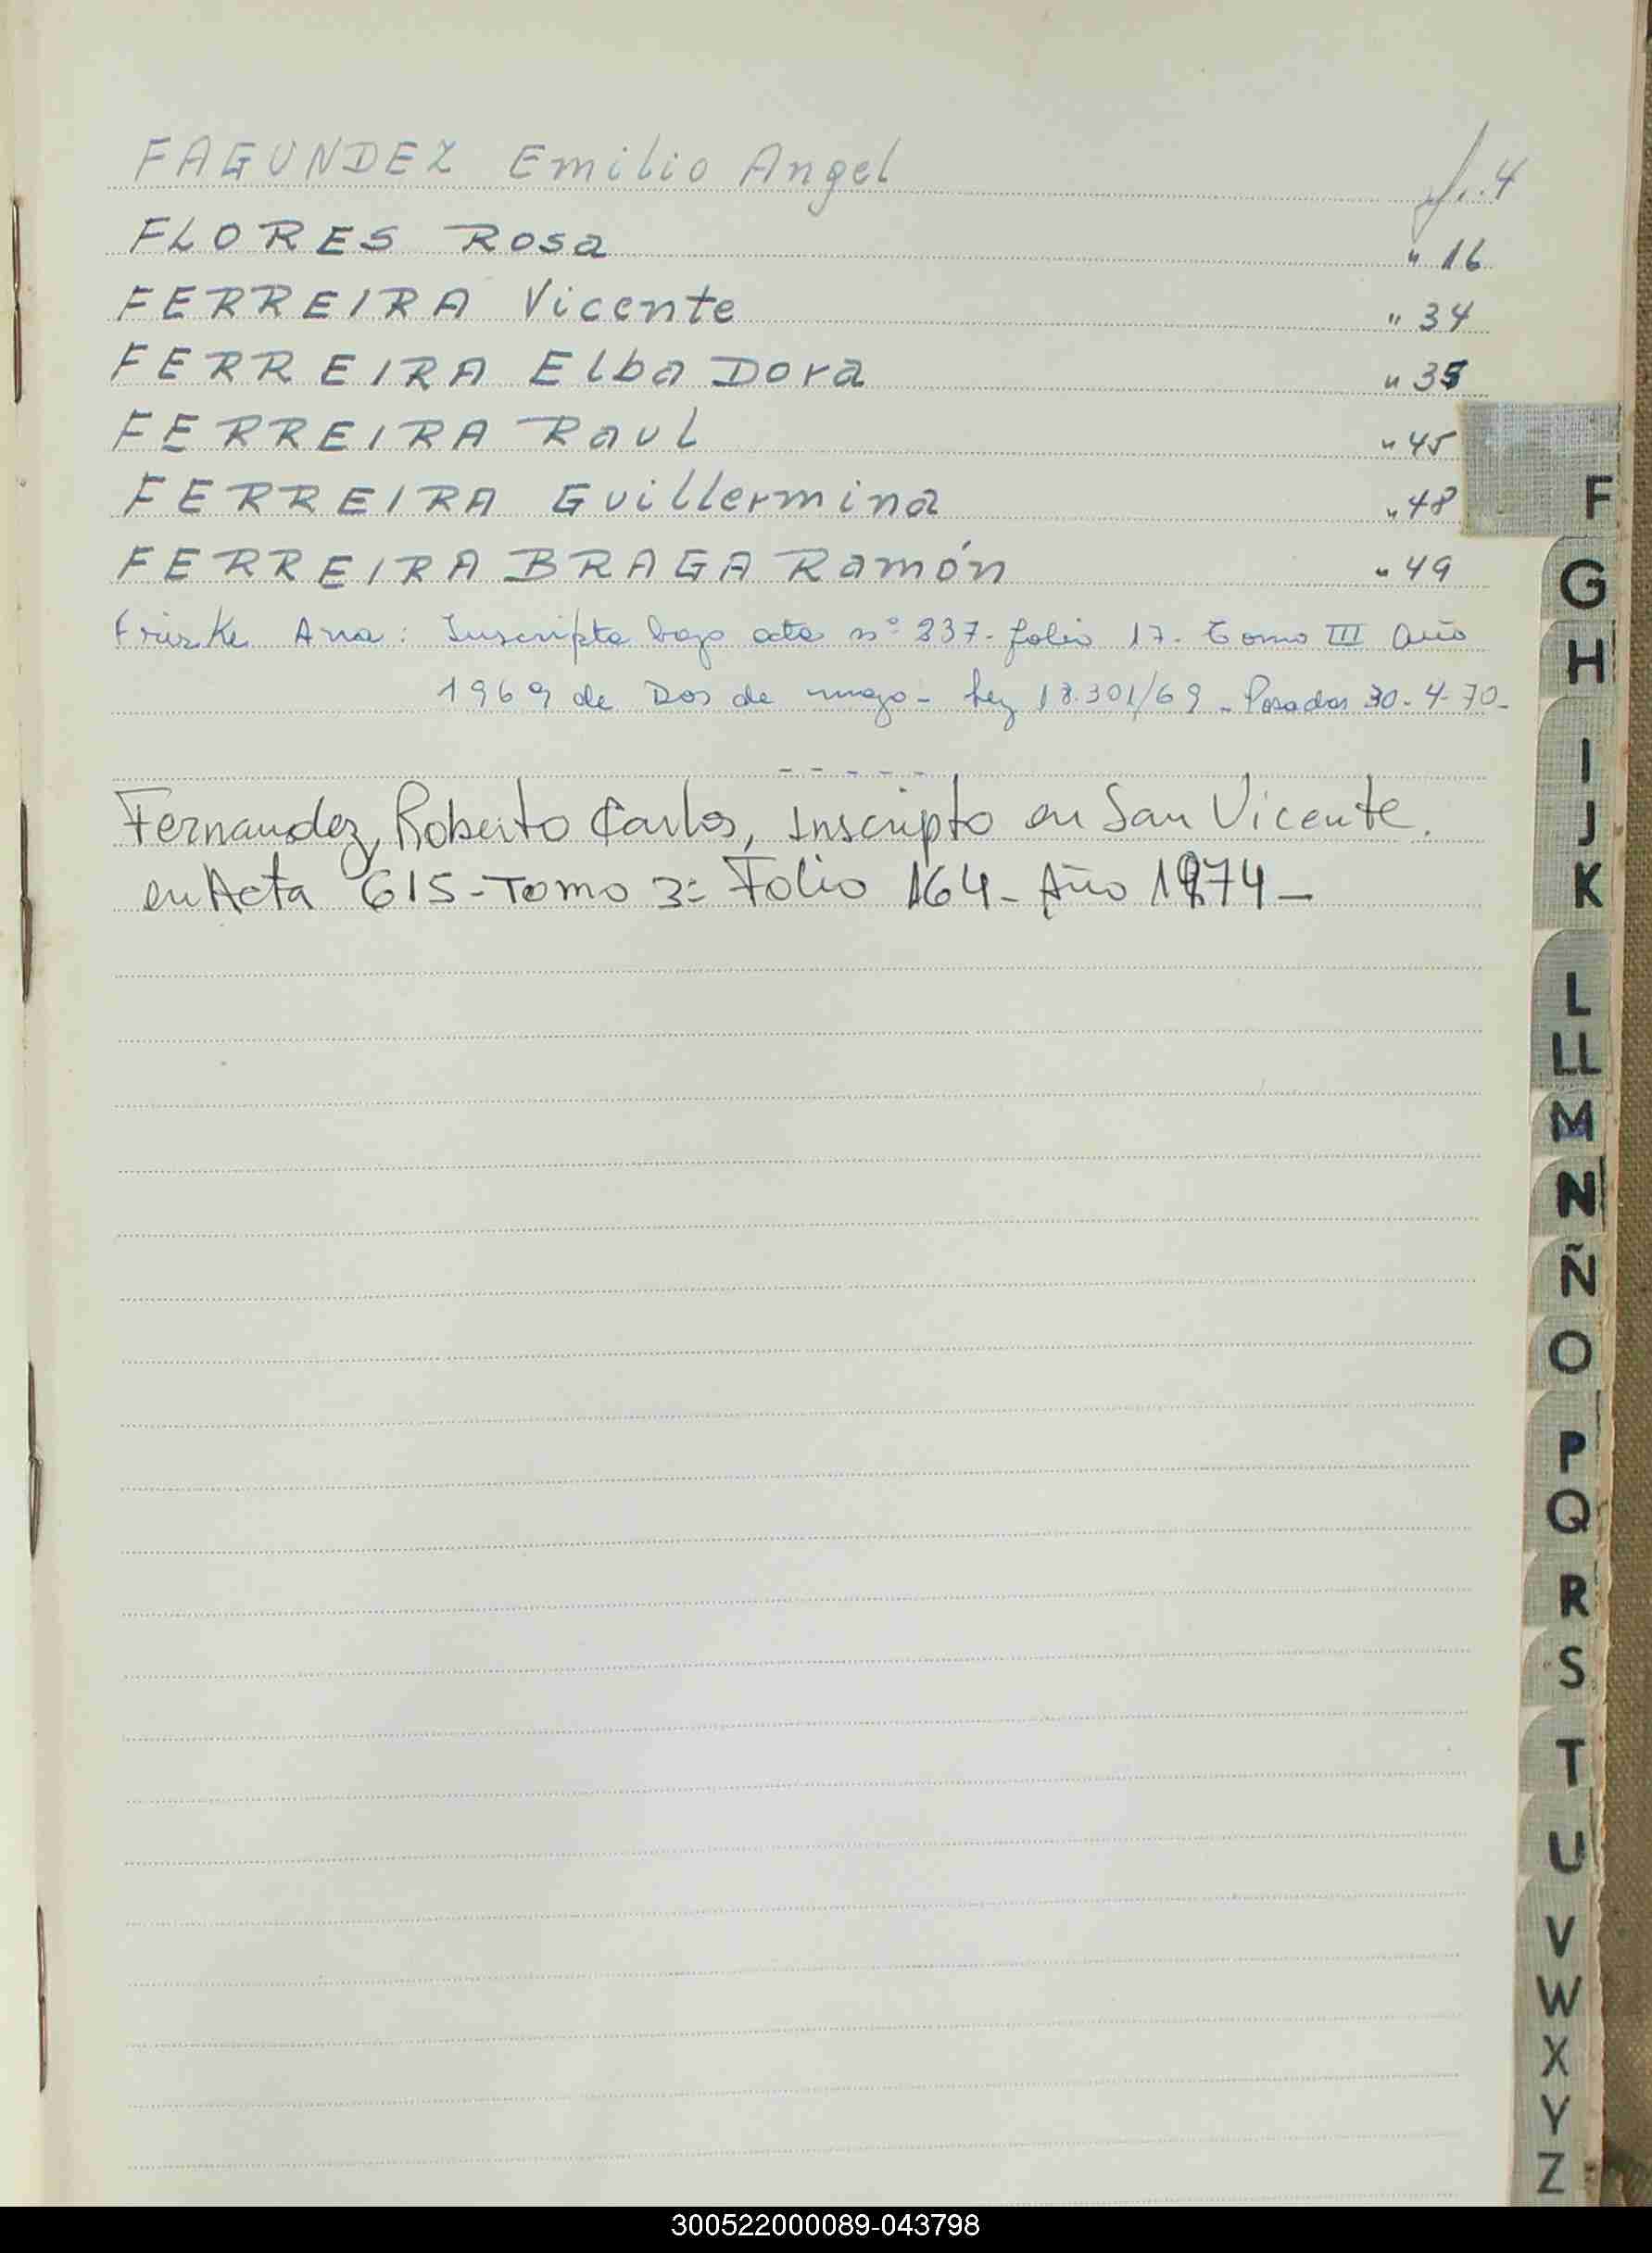 FAGUNDEZ Emilio Angel f. 4
FLORES Rosa " 16
FERREIRA Vicente " 34
FERREIRA Elba Dora " 35
FERREIRA Raul " 45
FERREIRA Guillermina " 48
FERREIRA BRAGA Ramón " 49
Ana: Inscripta bajo acta nº 237- folio 17- Tomo III Año
1969 de Dos de mayo - Ley 18.301/69 - Posadas 30-4-70-
- - - - -
Fernandez, Roberto Carlos, Inscripto en San Vicente.
en Acta 615 - Tomo 3º Folio 164 - Año 1974 -
F
G
H
I
J
K
L
LL
M
N
Ñ
O
P
Q
R
S
T
U
V
W
X
Y
Z
300522000089-043798